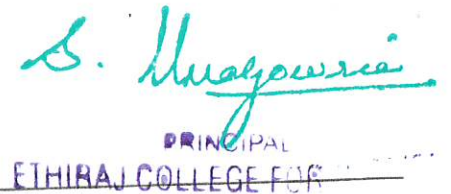 S. Umagowrie
PRINCIPAL
ETHIRAJ COLLEGE FOR